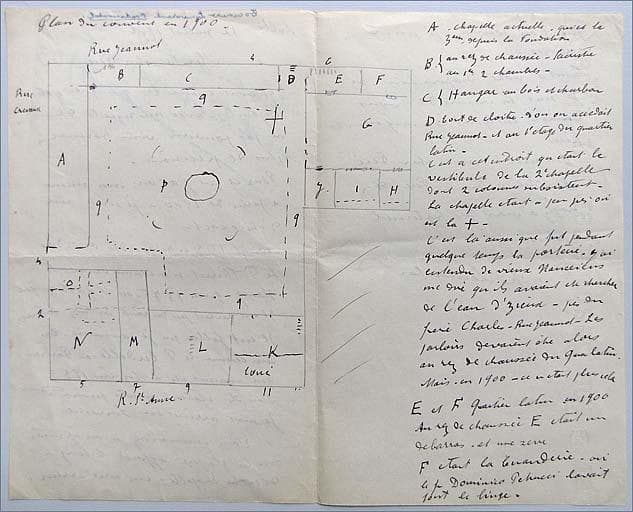 Plan du couvent en 1900
Rue Jeannot
4
6
B
C
D
E
F
Rue
9
G
A
P
9
9
J
I
H
4
O
9
2
N
M
L
K
Loué
5
7
9
11
R. Ste Anne
A chapelle actuelle, qui est la
3eme depuis la Fondation
B au rez de chaussée -
au 1er 2 chambres -
C Hangar au bois et charbon
D de cloitre d'où on accédait
Rue Jeannot - et au 1er étage du quartier
latin -
C'est à cet endroit qu'était le
vestibule de la 2e chapelle
dont 2 colonnes subsistent -
La chapelle était à peu près où
est la +
C'est là aussi que fut pendant
quelque temps la porterie - j'ai
entendu de vieux Nanceiens
me dire qu'ils avaient été chercher
de l'eau d' - près du
frère Charles - Rue Jeannot - Les
parloirs devaient être alors
au rez de chaussée du Qua. latin.
Mais en 1900 - ce n'était plus cela
E et F Quartier latin en 1900
Au rez de chaussée E était un
débarras - et une
F était la Buanderie - où
le p. Dominico lavait
tout le linge -